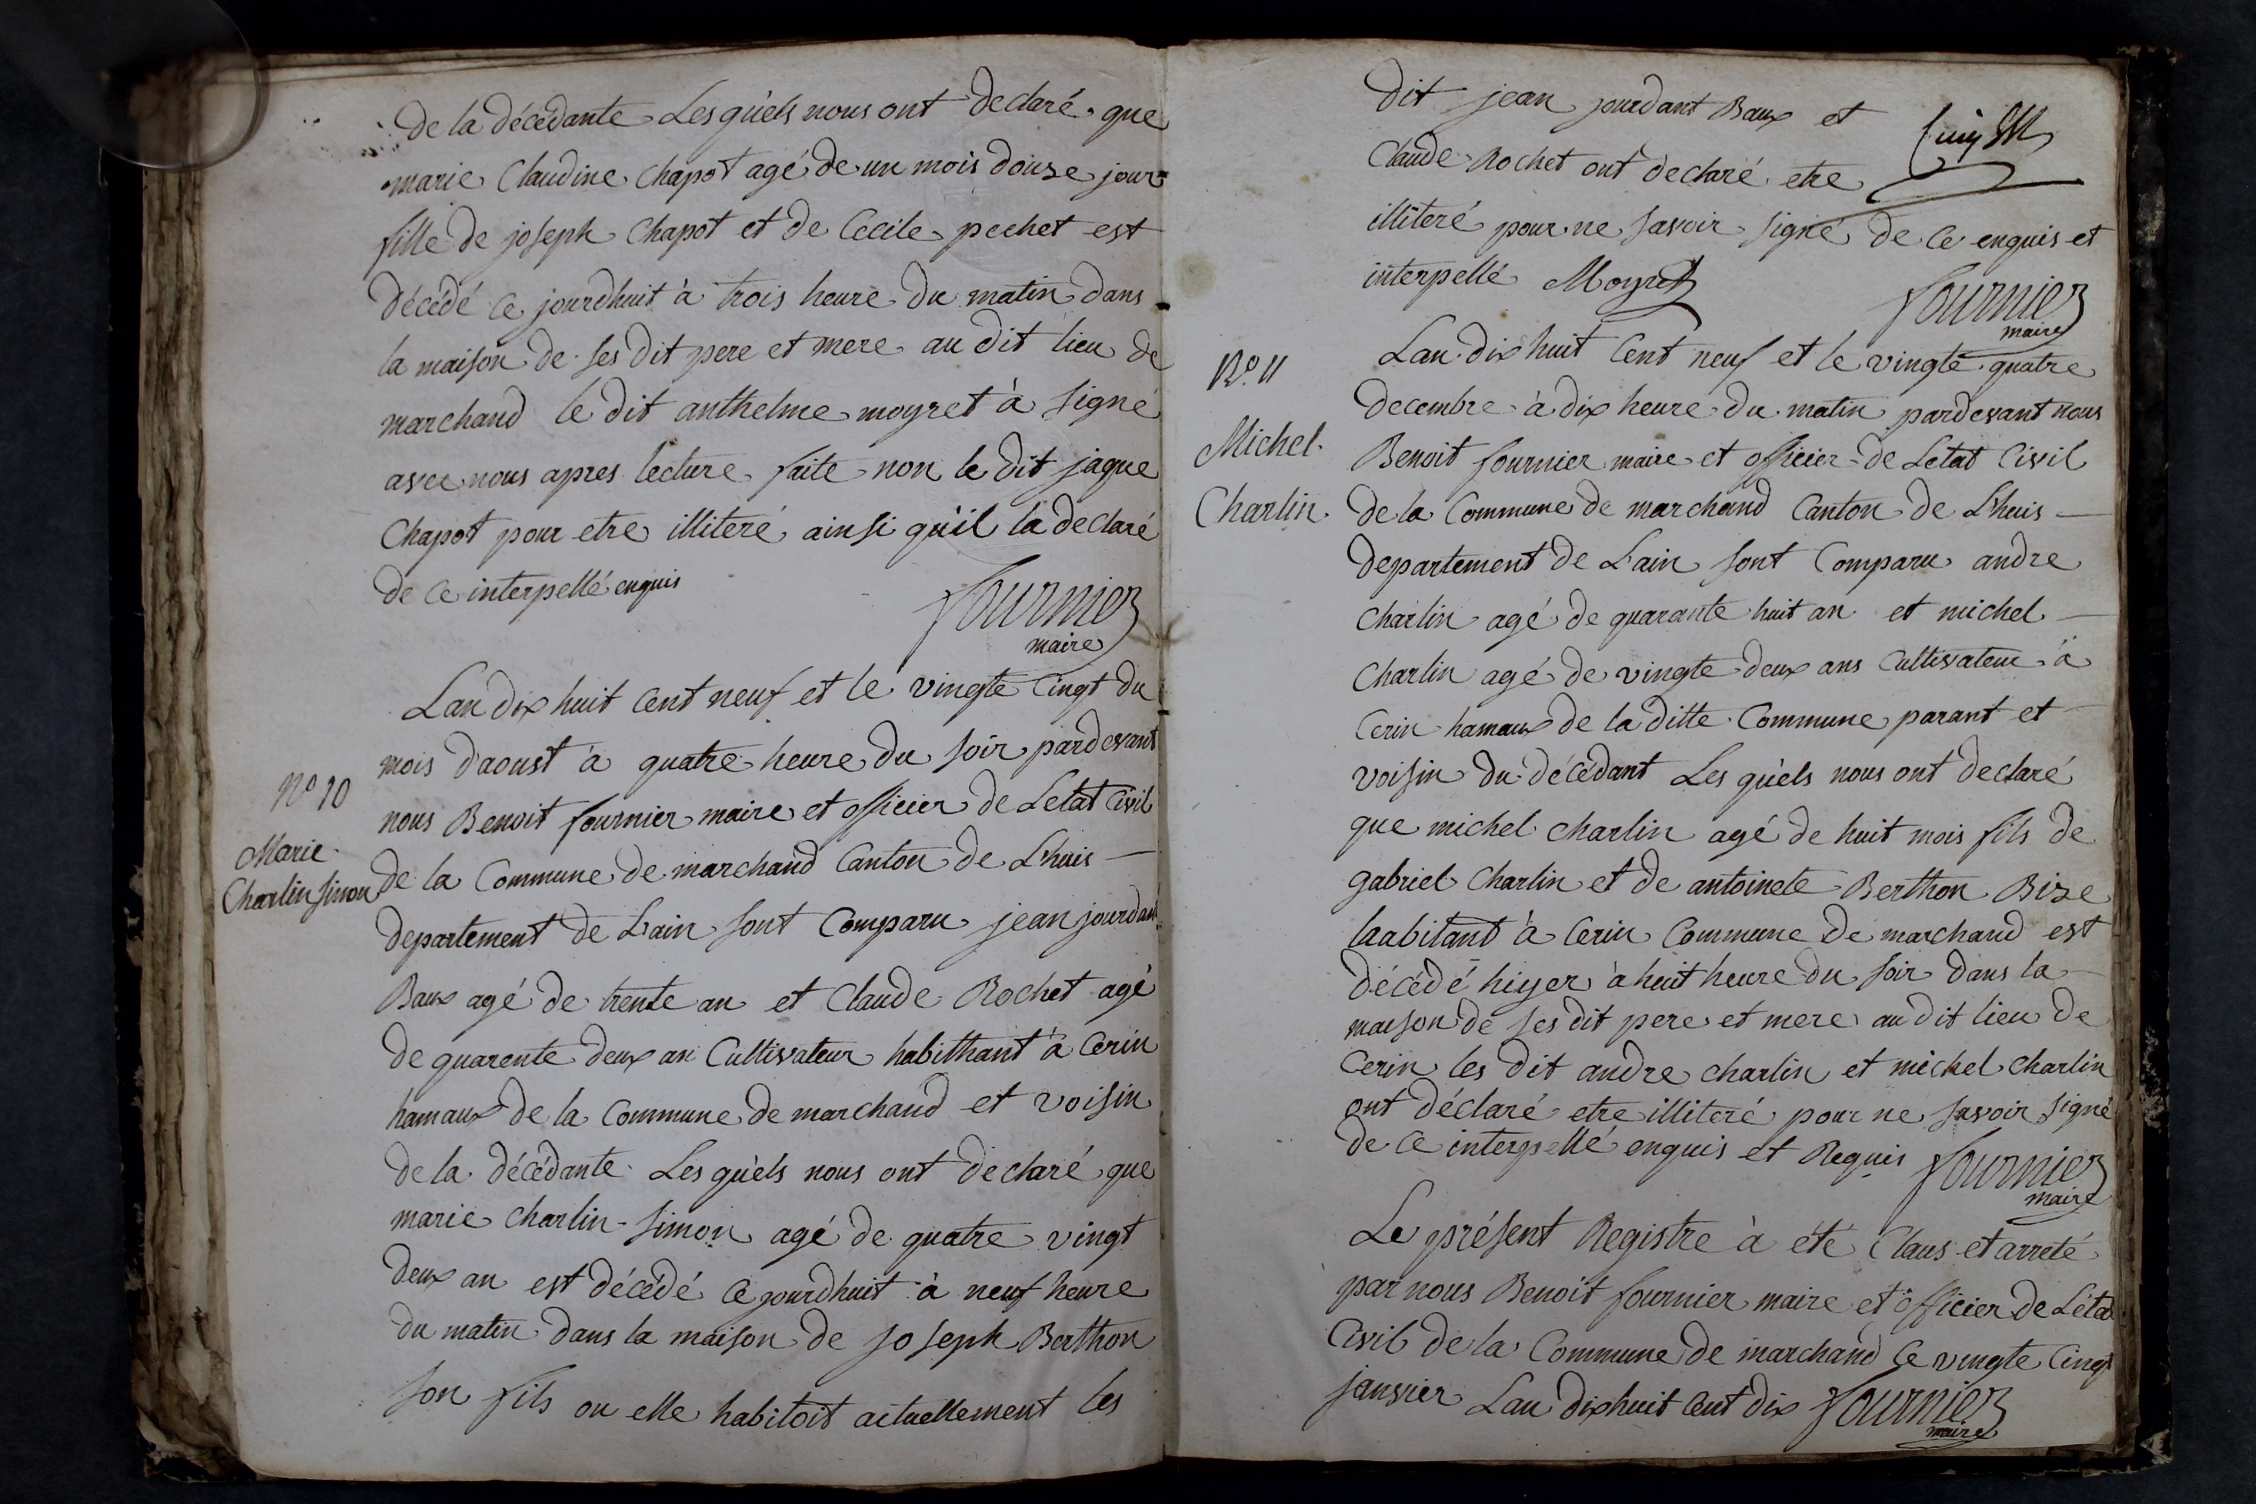 de la décédante Les quèls nous ont declaré que
marie Claudine chapot agé de un mois douse jour
fille de joseph chapot et de Cecile pechet est
décédé ce jourdhuit à trois heure du matin dans
la maison de ses dit pere et mere au dit lieu de
marchand le dit anthelme moyret à signé
avec nous apres lecture faite non le dit jaque
Chapot pour etre illiteré ainsi quil la declaré
de ce interpellé enquis
fournier
maire
Lan dix huit cent neuf et le vingte cinqt du
mois daoust à quatre heure du soir pardevant
nous Benoit fournier maire et officier de Letat Civil
de la Commune de marchand Canton de Lhuis
departement de Lain sont Comparu jean jourdant
Baux agé de trente an et Claude Rochet agé
de quarente deux an Cultivateur habitthant à Cerin
hamaux de la Commune de marchand et voisin
de la décédante Les quèls nous ont declaré que
marie charlin-simon agé de quatre vingt
deux an est décédé ce jourdhuit à neuf heure
du matin dans la maison de joseph Berthon
son fils ou elle habitoit actuellement les
N° 10
Marie
Charlin simon
dit jean jourdant Baux et
Claude Rochet ont declaré etre
illiteré pour ne savoir signé de ce enquis et
interpellé Moyret
fournier
maire
N° 11
Michel
Charlin
Lan dix huit cent neuf et le vingte quatre
decembre à dix heure du matin pardevant nous
Benoit fournier maire et officier de Letat Civil
de la Commune de marchand Canton de Lhuis
departement de Lain sont Comparu andre
charlin agé de quarante huit an et michel
charlin agé de vingte deux ans Cultivateur à
Cerin hamaux de la ditte Commune parant et
voisin du décédant Les quèls nous ont declaré
que michel charlin agé de huit mois fils de
gabriel Charlin et de antoinete Berthon Bize
laabitant à Cerin Commune de marchand est
décédé hiyer à huit heure du soir dans la
maison de ses dit pere et mere au dit lieu de
Cerin les dit andre charlin et michel charlin
ont déclaré etre illiteré pour ne savoir signé
de ce interpellé enquis et Requis fournier
maire
Le présent Registre à été Claus et arreté
par nous Benoit fournier maire et officier de Létat
Civil de la Commune de marchand Ce vingte Cinqt
janvier Lan dixhuit Cent dix fournier
maire